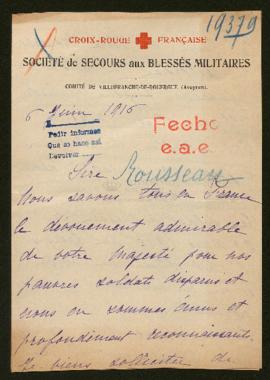 19379
CROIX-ROUGE FRANÇAISE
SOCIÉTÉ de SECOURS aux BLESSÉS MILITAIRES
COMITÉ DE VILLEFRANCHE-DE-ROUERGUE (Aveyron)
6 Juin 1916
Pedir informes
Que se hace así
Devolver
Fecho
e.a.e
Sire
Rousseau
Nous savons tous en France
le dévouement admirable
de votre Majesté pour nos
pauvres soldats disparus et
nous en sommes émus et
profondément reconnaissants.
Je viens solliciter de